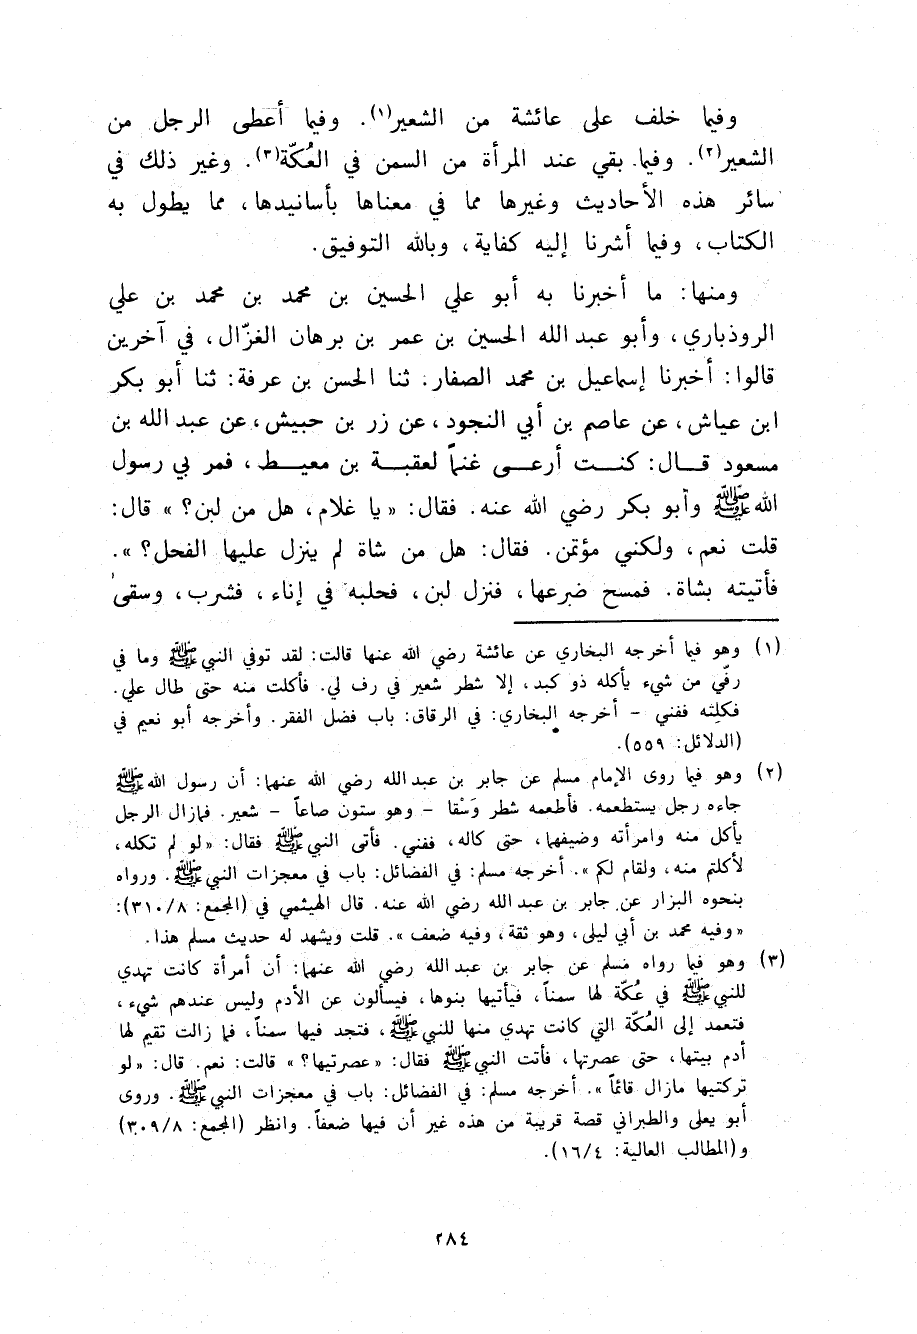 وفيما خلف على عائشة من الشعير(١). وفيما أعطى الرجل من
الشعير(٢). وفيما بقي عند المرأة من السمن في العُكّة(٣). وغير ذلك في
سائر هذه الأحاديث وغيرها مما في معناها بأسانيدها، مما يطول به
الكتاب، وفيما أشرنا إليه كفاية، وبالله التوفيق.
ومنها: ما أخبرنا به أبو علي الحسين بن محمد بن محمد بن علي
الروذباري، وأبو عبد الله الحسين بن عمر بن برهان الغزّال، في آخرين
قالوا: أخبرنا إسماعيل بن محمد الصفار. ثنا الحسن بن عرفة: ثنا أبو بكر
ابن عياش، عن عاصم بن أبي النجود، عن زر بن حبيش، عن عبد الله بن
مسعود قال: كنت أرعى غنماً لعقبة بن معيط، فمر بي رسول
الله ﷺ وأبو بكر رضي الله عنه. فقال: «يا غلام، هل من لبن؟» قال:
قلت نعم، ولكني مؤتمن. فقال: هل من شاة لم ينزل عليها الفحل؟».
فأتيته بشاة. فمسح ضرعها، فنزل لبن، فحلبه في إناء، فشرب، وسقى
(١) وهو فيما أخرجه البخاري عن عائشة رضي الله عنها قالت: لقد توفي النبي ﷺ وما في
رفّي من شيء يأكله ذو كبد، إلا شطر شعير في رف لي. فأكلت منه حتى طال علي.
فكلته ففني – أخرجه البخاري: في الرقاق: باب فضل الفقر. وأخرجه أبو نعيم في
(الدلائل: ٥٥٩).
(٢) وهو فيما روى الإمام مسلم عن جابر بن عبد الله رضي الله عنهما: أن رسول الله ﷺ
جاءه رجل يستطعمه. فأطعمه شطر وَسْقا – وهو ستون صاعاً – شعير. فمازال الرجل
يأكل منه وامرأته وضيفهما، حتى كاله، ففني. فأتى النبي ﷺ فقال: «لو لم تكله،
لأكلتم منه، ولقام لكم». أخرجه مسلم: في الفضائل: باب في معجزات النبي ﷺ. ورواه
بنحوه البزار عن جابر بن عبد الله رضي الله عنه. قال الهيثمي في (المجمع: ٣١٠/٨):
«وفيه محمد بن أبي ليلى، وهو ثقة، وفيه ضعف». قلت ويشهد له حديث مسلم هذا.
(٣) وهو فيما رواه مسلم عن جابر بن عبد الله رضي الله عنهما: أن أمرأة كانت تهدي
للنبي ﷺ في عُكّة لها سمناً، فيأتيها بنوها، فيسألون عن الأدم وليس عندهم شيء،
فتعمد إلى العُكّة التي كانت تهدي منها للنبي ﷺ، فتجد فيها سمناً، فما زالت تقيم لها
أدم بيتها، حتى عصرتها، فأتت النبي ﷺ فقال: «عصرتيها؟» قالت: نعم. قال: «لو
تركتيها مازال قائماً». أخرجه مسلم: في الفضائل: باب في معجزات النبي ﷺ. وروى
أبو يعلى والطبراني قصة قريبة من هذه غير أن فيها ضعفاً. وانظر (المجمع: ٣٠٩/٨)
و(المطالب العالية: ١٦/٤).
٢٨٤